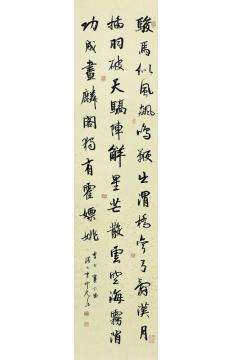 駿馬似風飆鳴鞭出渭橋彎弓辭漢月
插羽破天驕陣解星芒散雲空海霧消
功成畫麟閣獨有霍嫖姚